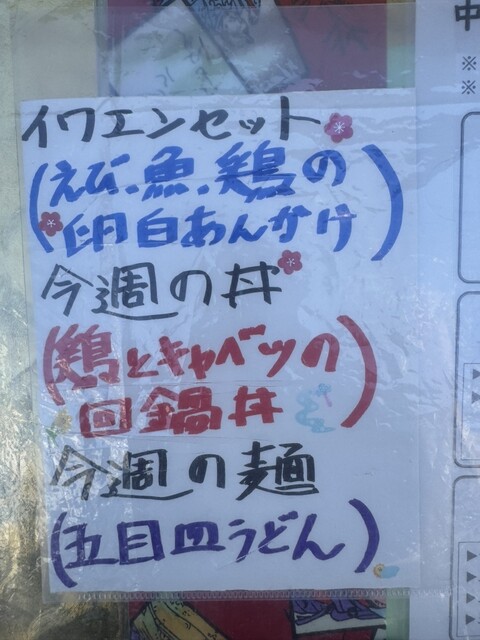 イワエンセット
(えび、魚、鶏の
卵白あんかけ)
今週の丼
(鶏とキャベツの
回鍋丼)
今週の麺
(五目皿うどん)
中
※
※